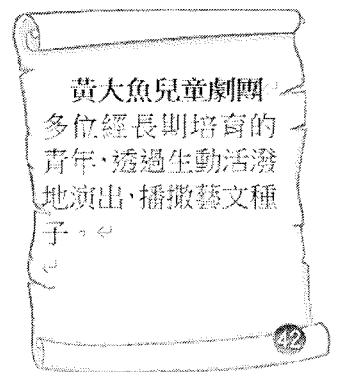 黃大魚兒童劇團
多位經長期培育的
青年，透過生動活潑
地演出，播撒藝文種
子。
42